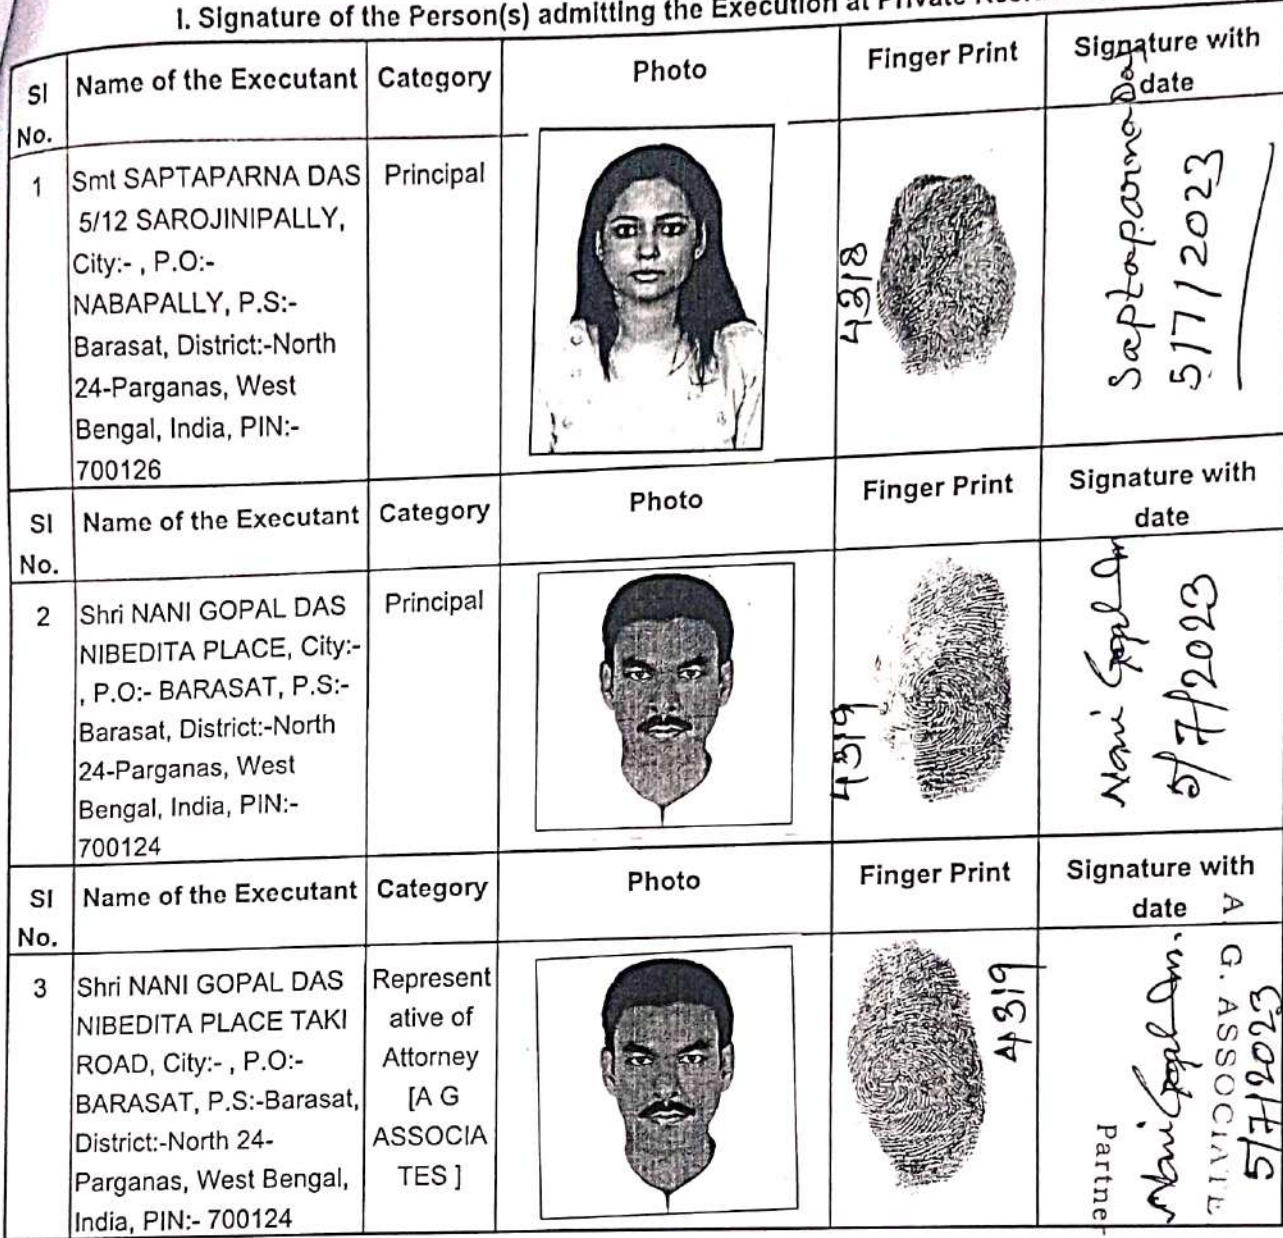 I. Signature of the Person(s) admitting the Execution at Private
Sl No.
Name of the Executant
Category
Photo
Finger Print
Signature with date
1
Smt SAPTAPARNA DAS
5/12 SAROJINIPALLY,
City:- , P.O:-
NABAPALLY, P.S:-
Barasat, District:-North
24-Parganas, West
Bengal, India, PIN:-
700126
Principal
4318
Saptaparna Das
5/7/2023
Sl No.
Name of the Executant
Category
Photo
Finger Print
Signature with date
2
Shri NANI GOPAL DAS
NIBEDITA PLACE, City:-
, P.O:- BARASAT, P.S:-
Barasat, District:-North
24-Parganas, West
Bengal, India, PIN:-
700124
Principal
4319
Nani Gopal Das
5/7/2023
Sl No.
Name of the Executant
Category
Photo
Finger Print
Signature with date
3
Shri NANI GOPAL DAS
NIBEDITA PLACE TAKI
ROAD, City:- , P.O:-
BARASAT, P.S:-Barasat,
District:-North 24-
Parganas, West Bengal,
India, PIN:- 700124
Represent
ative of
Attorney
[A G
ASSOCIA
TES ]
4319
A. G. ASSOCIATE
Nani Gopal Das.
5/7/2023
Partne